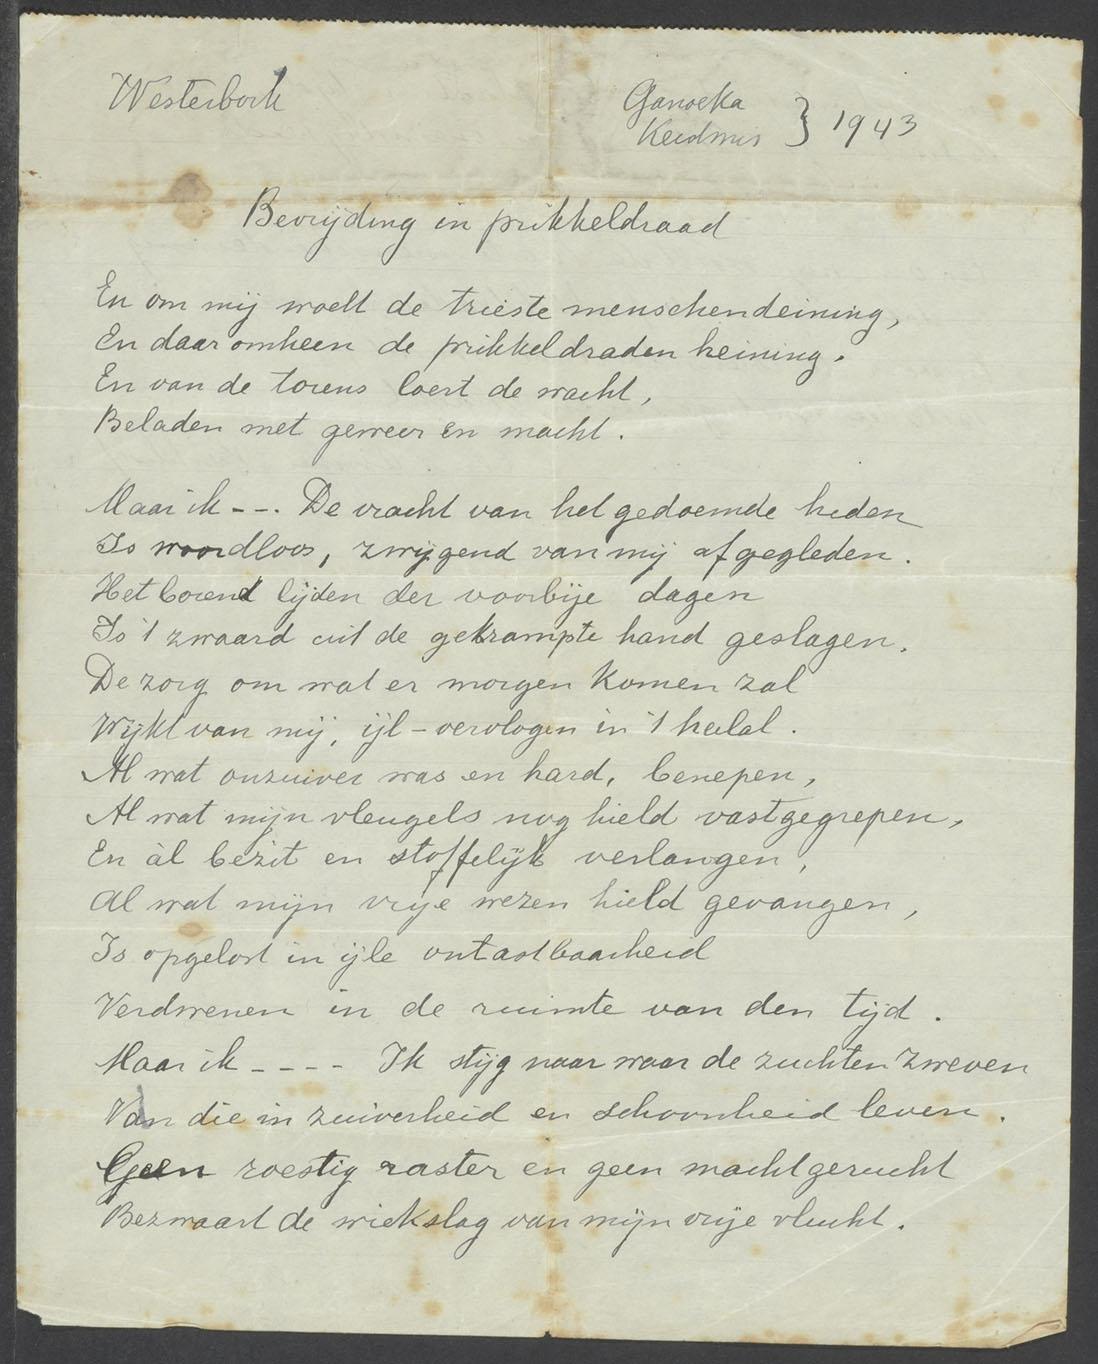 Westerbork
Ganoeka
Kerstmis } 1943
Bevrijding in prikkeldraad
En om mij woelt de trieste menschendeining,
En daaromheen de prikkeldraden heining.
En van de torens loert de wacht,
Beladen met geweer en macht.
Maar ik --. De vracht van het gedoemde heden
Is woordloos, zwijgend van mij afgegleden.
Het borend lijden der voorbije dagen
Is 't zwaard uit de gekrampte hand geslagen.
De zorg om wat er morgen komen zal
Wijkt van mij, ijl-vervlogen in 't heelal.
Al wat onzuiver was en hard, benepen,
Al wat mijn vleugels nog hield vastgegrepen,
En àl bezit en stoffelijk verlangen,
Al wat mijn vrije wezen hield gevangen,
Is opgelost in ijle ontastbaarheid
Verdwenen in de ruimte van den tijd.
Maar ik ---- Ik stijg naar waar de zuchten zweven
Van die in zuiverheid en schoonheid leven.
Geen roestig raster en geen machtgerucht
Bezwaart de wiekslag van mijn vrije vlucht.